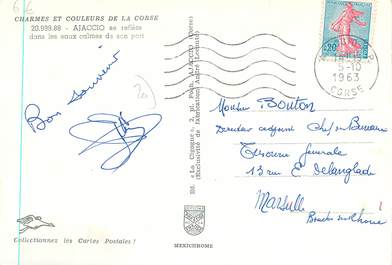 CHARMES ET COULEURS DE LA CORSE
20.999.88 - AJACCIO se reflète
dans les eaux calmes de son port
Bon souvenir
Collectionnez les Cartes Postales !
Ed. « La Cigogne », 2, pl. Foch, AJACCIO (Corse)
(Exclusivité de fabrication André
MEXICHROME
0,20
5-10
1963
CORSE
Monsieur Bouton
Directeur adjoint Chef de Bureau
Trésorerie Générale
13 rue E Delanglade
Marseille
Bouches du Rhône